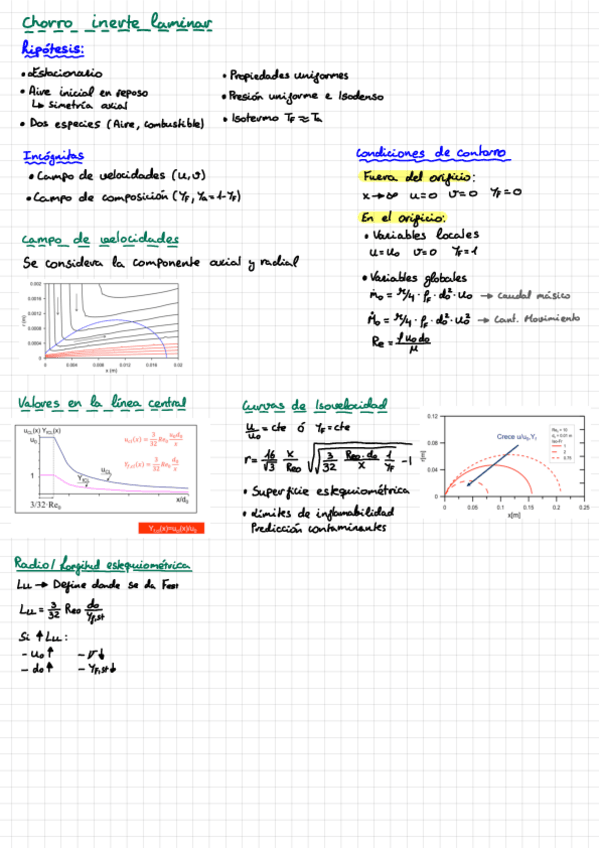 Chorro inerte laminar
Hipótesis:
• Estacionario
• Aire inicial en reposo
↳ simetría axial
• Dos especies (Aire, combustible)
• Propiedades uniformes
• Presión uniforme e Isodenso
• Isotermo T_F ≈ T_a
Incógnitas
• Campo de velocidades (u, v)
• Campo de composición (Y_F, Y_a = 1-Y_F)
Condiciones de contorno
Fuera del orificio:
x → ∞ u = 0 v = 0 Y_F = 0
En el orificio:
• Variables locales
u = u_0 v = 0 Y_F = 1
• Variables globales
ṁ_0 = π/4 · ρ_F · d_0² · u_0 → Caudal másico
Ṁ_0 = π/4 · ρ_F · d_0² · u_0² → Cant. Movimiento
Re = ρ u_0 d_0 / μ
Campo de velocidades
Se considera la componente axial y radial
0.002
0.0016
0.0012
0.0008
0.0004
0
r [m]
0 0.004 0.008 0.012 0.016 0.02
x [m]
Valores en la línea central
u_CL(x) Y_fCL(x)
u_0
1
u_cl(x) = 3/32 Re_0 u_0 d_0 / x
Y_f,cl(x) = 3/32 Re_0 d_0 / x
u_CL
Y_fCL
x/d_0
3/32·Re_0
Y_f,cl(x)=u_cl(x)/u_0
Curvas de Isovelocidad
u/u_0 = cte ó Y_F = cte
r = 16/√3 x/Re_0 √(√(3/32 Re_0·d_0/x 1/Y_F) - 1)
• Superficie estequiométrica
• Límites de inflamabilidad
Predicción contaminantes
0.12
0.08
0.04
0
r[m]
Crece u/u_0,Y_f
Re_0 = 10
d_0 = 0.01 m
1
2
0.75
0 0.05 0.1 0.15 0.2 0.25
x[m]
Radio/longitud estequiométrica
L_ll → Define donde se da F_est
L_ll = 3/32 Re_0 d_0/Y_f,st
Si ↑ L_ll:
- u_0 ↑ - ν ↓
- d_0 ↑ - Y_F,st ↓